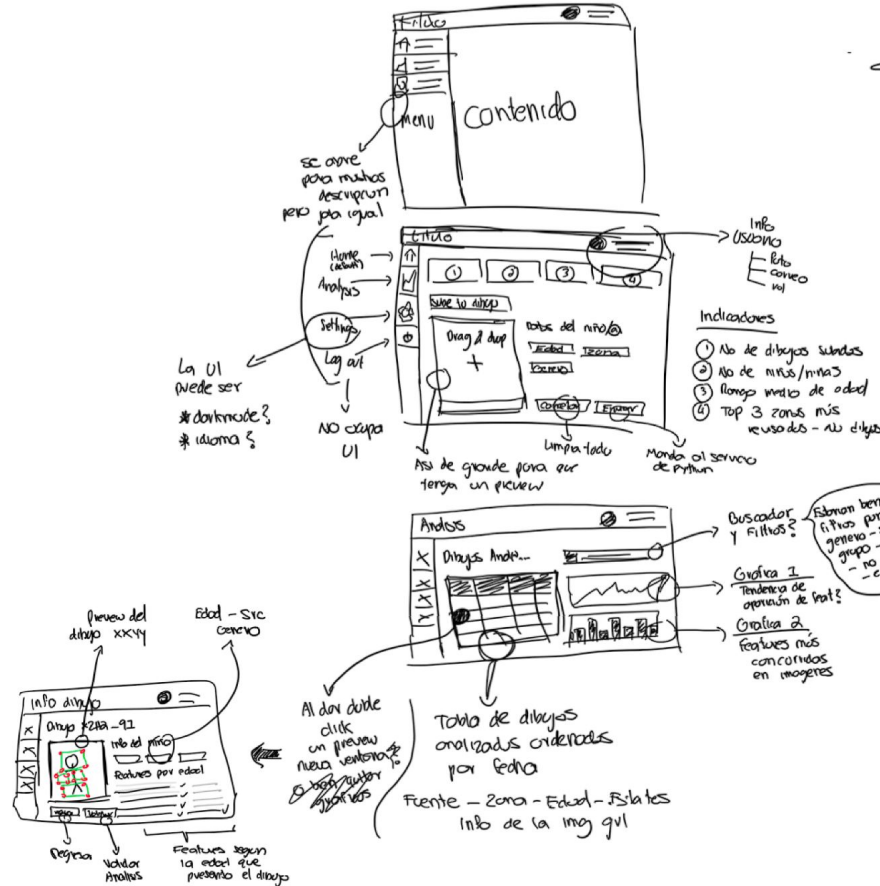 titulo
menu
Contenido
se abre
para mostrar
descripcion
pero jala igual
titulo
Home
(default)
Analysis
Settings
Log out
La UI
puede ser
* darkmode?
* idioma?
NO ocupa
UI
1
2
3
4
Sube tu dibujo
Drag & drop
+
Datos del niño/a
Edad
Zona
Genero
Cancelar
Enviar
Limpia todo
Manda al servicio
de Python
Así de grande para que
tenga un preview
Info
Usuario
Foto
correo
rol
Indicadores
1 No de dibujos subidos
2 No de niños/niñas
3 Rango medio de edad
4 Top 3 zonas más
- No dibujos
Analisis
Dibujos
Buscador
y Filtros?
filtros por
genero -
grupo -
- no
Grafica 1
Tendencia de
aparición de feat?
Grafica 2
Features más
concurridos
en imagenes
Al dar doble
click
un preview
nueva ventana?
Tabla de dibujos
analizados ordenados
por fecha
Fuente - Zona - Edad -
Info de la img
Preview del
dibujo XXYY
Edad - Src
Genero
Info dibujo
Dibujo
Info del niño
Features por edad
Regresa
Validar
Analisis
Features segun
la edad que
presento el dibujo